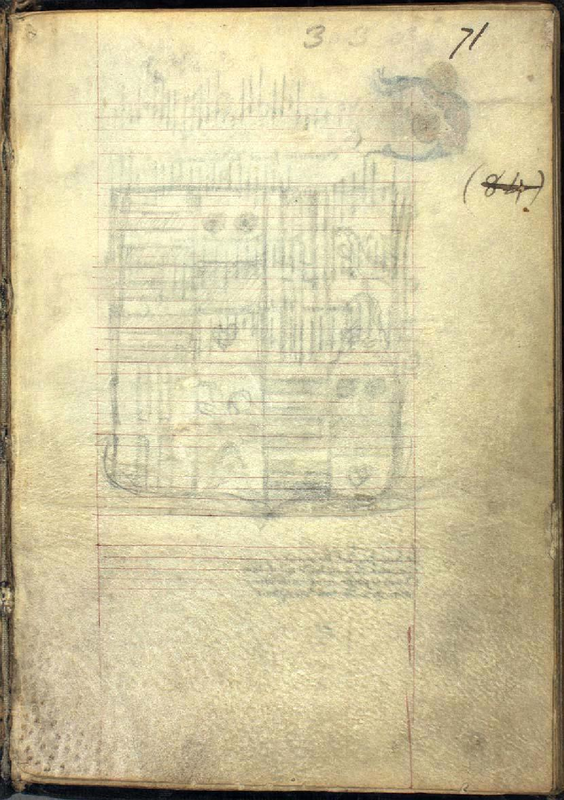 3 3
71
(84)